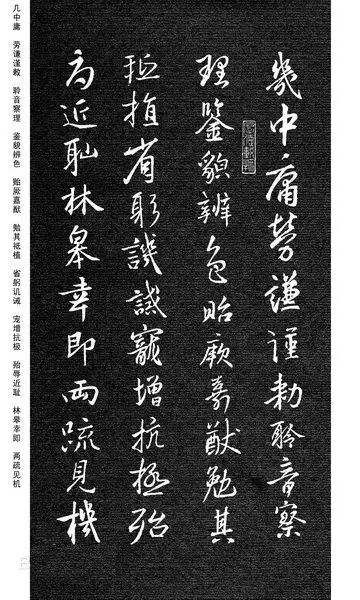 幾中庸勞謙謹勅聆音察
理鑒貌辨色貽厥嘉猷勉其
祗植省躬譏誡寵增抗極殆
辱近耻林皋幸即兩疏見機
几中庸 劳谦谨敕 聆音察理 鉴貌辨色 贻厥嘉猷 勉其祗植 省躬讥诫 宠增抗极 殆辱近耻 林皋幸即 两疏见机